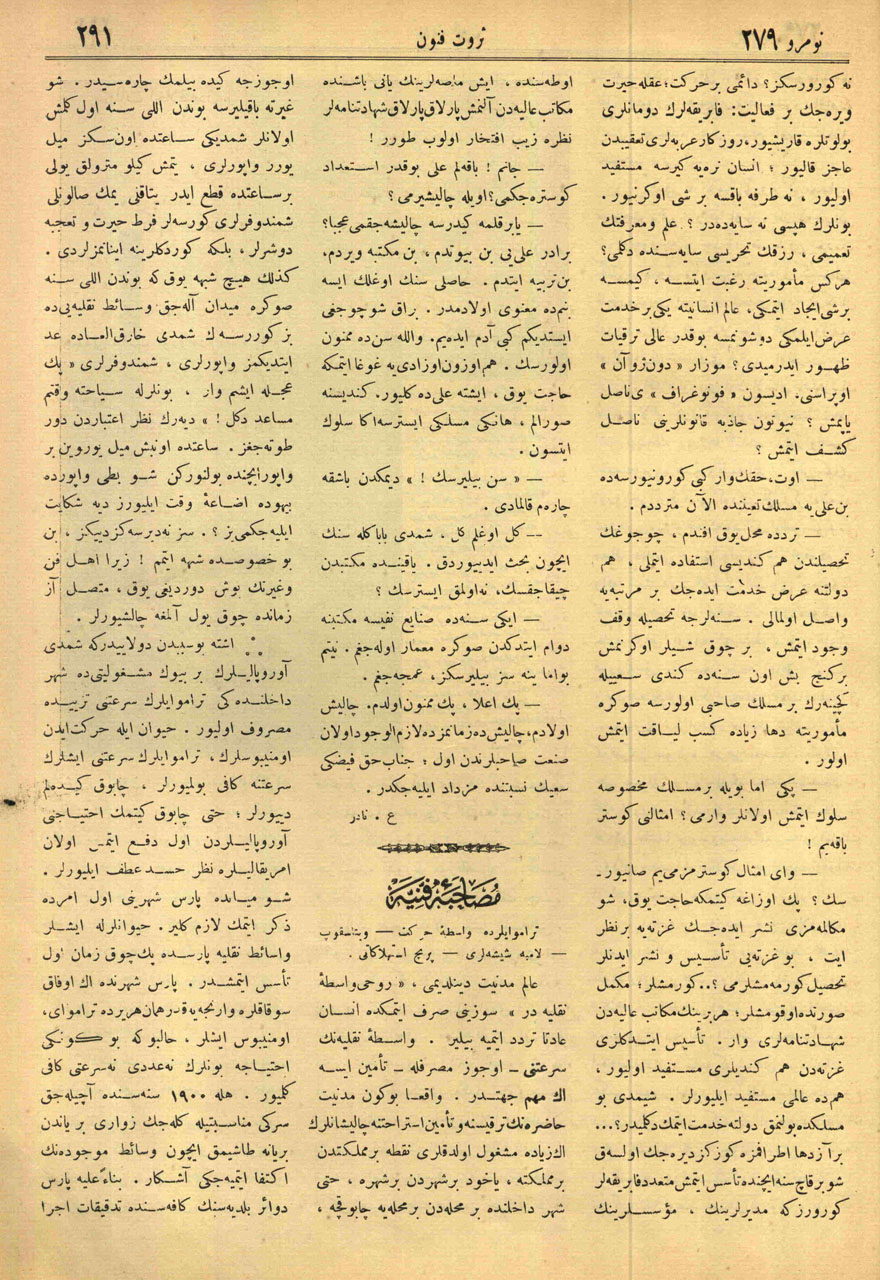 نومرو ۲۷۹
ثروت فنون
۲۹۱
نه كورورسكز؟ دائمی بر حركت؛ عقله حیرت
ویره جك بر فعالیت: فابریقه لرك دومانلری
بولوتلره قاریشیور، روزكار عربه لری تعقیبدن
عاجز قالیور ؛ انسان نره یه كیرسه مستفید
اولیور ، نه طرفه باقسه بر شی اوكرنیور .
بونلرك هپسی نه سایه ده در ؟ علم ومعرفتك
تعمیمی ، رزقك تحریسی سایه سنده دكلمی؟
هركس مأموریته رغبت ایتسه ، كیمسه
برشی ایجاد ایتمكی، عالم انسانیته یكی بر خدمت
عرض ایلمكی دوشونمسه بوقدر عالی ترقیات
ظهور ایدرمیدی؟ موزار « دون ژوآن »
اوپراسنی. ادیسون « فونوغراف » ی ناصل
یاپمش ؟ نیوتون جاذبه قانونلرینی ناصل
كشف ایتمش ؟
— اوت، حقك وار كبی كورونیورسه ده
بن علی یه مسلك تعییننده الآن مترددم .
— تردده محل یوق افندم ، چوجوغك
تحصیلندن هم كندیسی استفاده ایتملی ، هم
دولتنه عرض خدمت ایده جك بر مرتبه یه
واصل اولمالی . سنه لرجه تحصیله وقف
وجود ایتمش ، بر چوق شیلر اوكرنمش
بركنج بش اون سنه ده كندی سعییله
كچینه رك بر مسلك صاحبی اولورسه صوكره
مأموریته دها زیاده كسب لیاقت ایتمش
اولور .
— پكی اما بویله بر مسلك مخصوصه
سلوك ایتمش اولانلر وارمی؟ امثالنی كوستر
باقه یم !
— وای امثال كوسترمزمی یم صانیور-
سك ؟ پك اوزاغه كیتمكه حاجت یوق، شو
مكالمه مزی نشر ایده جك غزته یه بر نظر
ایت ، بو غزته یی تأسیس و نشر ایدنلر
تحصیل كورمه مشلرمی ؟.. كورمشلر؛ مكمل
صورتده اوقومشلر؛ هر برینك مكاتب عالیه دن
شهادتنامه لری وار . تأسیس ایتدكلری
غزته دن هم كندیلری مستفید اولیور ،
هم ده عالمی مستفید ایلیورلر . شیمدی بو
مسلكده بولنمق دولته خدمت ایتمك دكلمیدر؟...
بر آز دها اطرافمزه كوز كزدیره جك اولسه ق
شو برقاچ سنه ایچنده تأسس ایتمش متعدد فابریقه لر
كورورز كه مدیرلرینك ، مؤسسلرینك
اوطه سنده ، ایش ماصه لرینك یانی باشنده
مكاتب عالیه دن آلنمش پارلاق پارلاق شهادتنامه لر
نظره زیب افتخار اولوب طورر !
— جانم ! باقه لم علی بوقدر استعداد
كوستره جكمی؟ اویله چالیشیرمی ؟
— یا بر قلمه كیدرسه چالیشه جقمی عجبا؟
برادر علی یی بن بیوتدم ، بن مكتبه ویردم،
بن تربیه ایتدم . حاصلی سنك اوغلك ایسه
بنم ده معنوی اولادمدر. براق شو چوجغی
ایستدیكم كبی آدم ایده یم. والله سن ده ممنون
اولورسك . هم اوزون اوزادی یه غوغا ایتمكه
حاجت یوق ، ایشته علی ده كلیور. كندیسنه
صورالم ، هانكی مسلكی ایسترسه اكا سلوك
ایتسون .
— « سن بیلیرسك ! » دیمكدن باشقه
چاره م قالمادی .
— كل اوغلم كل ، شمدی باباكله سنك
ایچون بحث ایدییوردق . یاقینده مكتبدن
چیقاجقسك، نه اولمق ایسترسك ؟
— ایكی سنه ده صنایع نفیسه مكتبنه
دوام ایتدكدن صوكره معمار اوله جغم . نیتم
بواما ینه سز بیلیرسكز، عمجه جغم .
— پك اعلا ، پك ممنون اولدم. چالیش
اولادم، چالیش ده زمانمزده لازم الوجود اولان
صنعت صاحبلرندن اول ؛ جناب حق فیضكی
سعیك نسبتنده مزداد ایلیه جكدر .
ع . نادر
مُصَاحَبَۀ فَنِّيَّه
تراموایلرده واسطۀ حركت — ویتاسقوپ
— لامبه شیشه لری — پرنج استهلاكاتی .
عالم مدنیت دینلدیمی ، « روحی واسطۀ
نقلیه در » سوزینی صرف ایتمكده انسان
عادتا تردد ایتمیه بیلیر . واسطۀ نقلیه نك
سرعتنی ـ اوجوز مصرفله ـ تأمین ایسه
اك مهم جهتدر . واقعا بوكون مدنیت
حاضره نك ترقیسنه و تأمین استراحتنه چالیشانلرك
اك زیاده مشغول اولدقلری نقطه بر مملكتدن
بر مملكته ، یاخود بر شهردن بر شهره ، حتی
شهر داخلنده بر محله دن بر محله یه چابوقجه ،
اوجوزجه كیده بیلمك چاره سیدر . شو
غیرته باقیلیرسه بوندن اللی سنه اول كلمش
اولانلر شمدیكی ساعتده اون سكز میل
یورر واپورلری ، یتمش كیلو مترولق یولی
بر ساعتده قطع ایدر یتاقلی یمك صالونلی
شمندوفرلری كورسه لر فرط حیرت و تعجبه
دوشرلر ، بلكه كوردكلرینه اینانمزلردی .
كذلك هیچ شبهه یوق كه بوندن اللی سنه
صوكره میدان آله جق وسائط نقلیه یی ده
بز كوررسه ك شمدی خارق العاده عد
ایتدیكمز واپورلری ، شمندوفرلری « پك
عجله ایشم وار ، بونلرله سیاحته وقتم
مساعد دكل ! » دیه رك نظر اعتباردن دور
طوته جغز. ساعتده اونبش میل یوروین بر
واپور ایچنده بولنوركن شو بطی واپورده
بیهوده اضاعۀ وقت ایلیورز دیه شكایت
ایلیه جكمی یز ؟. سز نه دیرسه كز دییكز ، بن
بو خصوصده شبهه ایتمم ! زیرا اهل فن
وغیرتك بوش دوردیغی یوق ، متصل آز
زمانده چوق یول آلمغه چالشیورلر .
اشته بوسببدن دولاییدر كه شمدی
آوروپالیلرك بر بیوك مشغولیتی ده شهر
داخلنده كی تراموایلرك سرعتی تزییده
مصروف اولیور . حیوان ایله حركت ایدن
اومنیبوسلرك ، تراموایلرك سرعتی ایشلرك
سرعتنه كافی بولمیورلر ، چابوق كیده لم
دییورلر ؛ حتی چابوق كیتمك احتیاجنی
آوروپالیلردن اول دفع ایتمش اولان
امریقالیلره نظر حسد عطف ایلیورلر .
شو میانده پارس شهرینی اول امرده
ذكر ایتمك لازم كلیر. حیوانلرله ایشلر
واسائط نقلیه پارسده پك چوق زمان اول
تأسس ایتمشدر . پارس شهرنده اك اوفاق
سوقاقلره وارنجه یه قدر همان هر یرده تراموای،
اومنیبوس ایشلر ، حالبو كه بو كونكی
احتیاجه بونلرك نه عددی نه سرعتی كافی
كلمیور . هله ۱۹۰۰ سنه سنده آچیله جق
سركی مناسبتیله كله جك زواری بر یاندن
بر یانه طاشیمق ایچون وسائط موجوده نك
اكتفا ایتمیه جكی آشكار . بناءً علیه پارس
دوائر بلدیه سنك كافه سنده تدقیقات اجرا